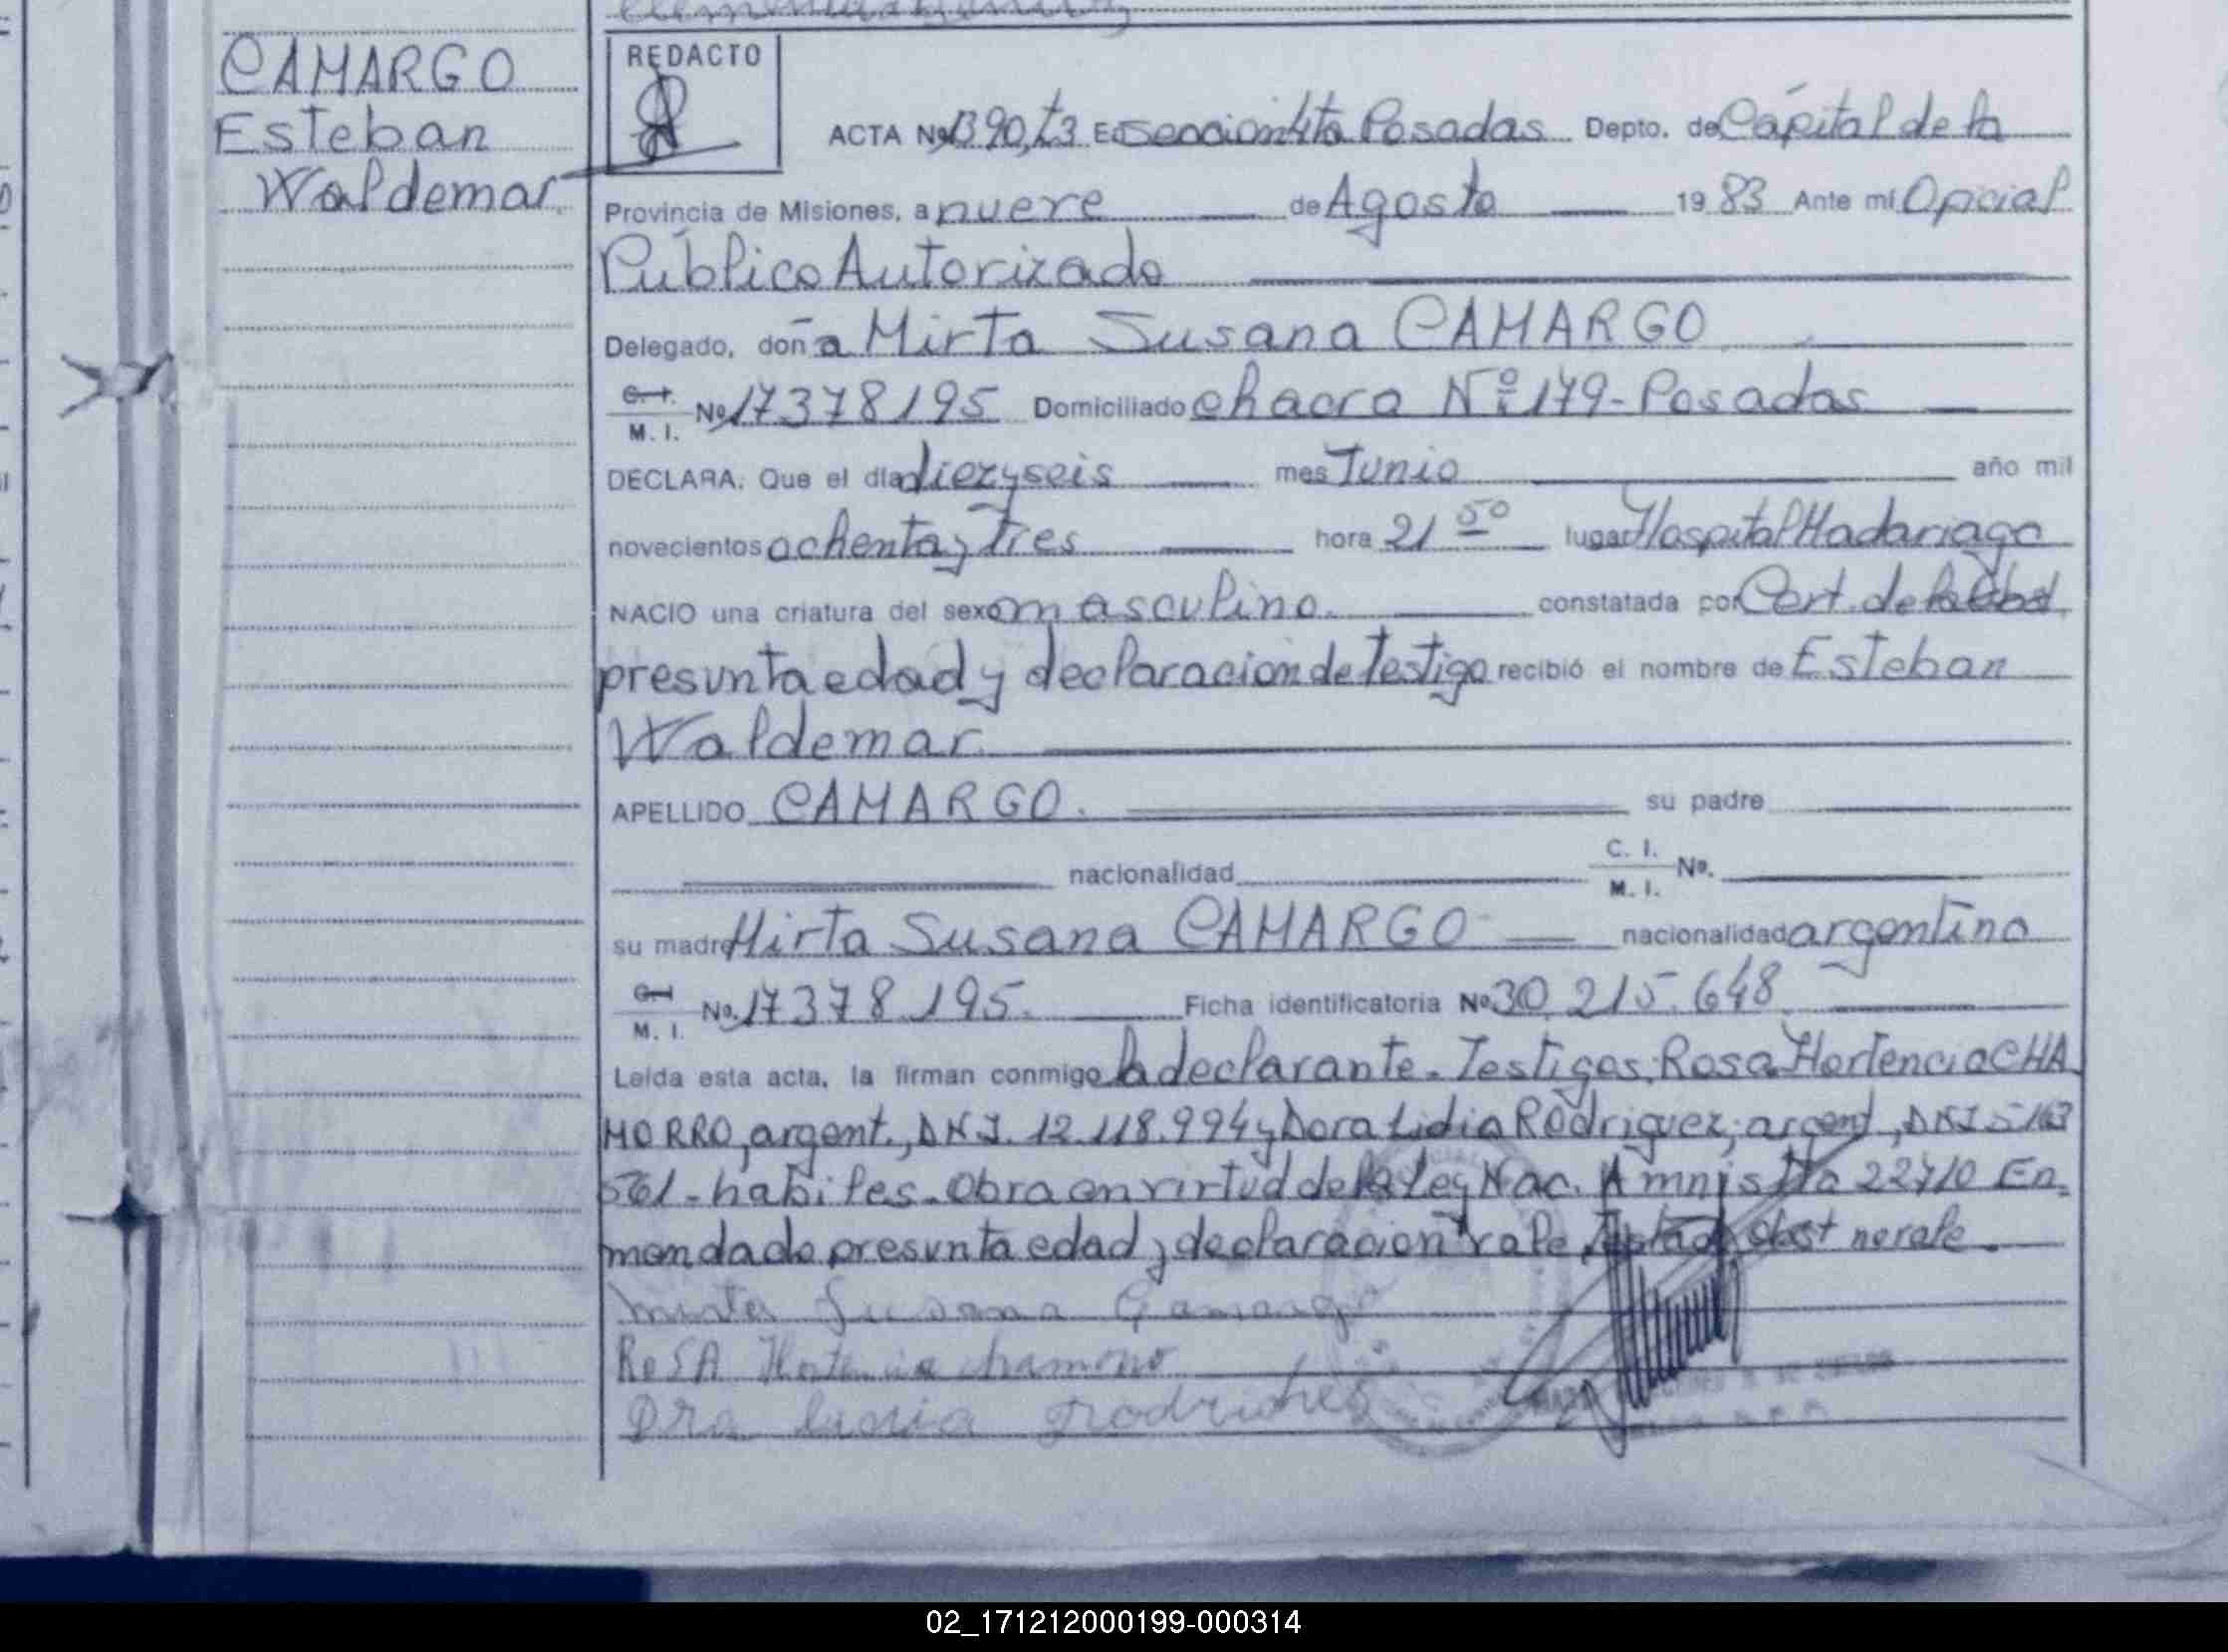 CAMARGO
Esteban
Waldemar
REDACTO
ACTA Nº 1390, t3 En seccion 4ta Posadas Depto. de Capital de la
Provincia de Misiones, a nueve de Agosto 19 83 Ante mí Oficial
Público Autorizado
Delegado, doña Mirta Susana CAMARGO
C. I. M. I. Nº 17378195 Domiciliado chacra Nº 179 - Posadas
DECLARA: Que el día diez y seis mes Junio año mil
novecientos ochenta y Tres hora 21 50 lugar Hospital Madariaga
NACIO una criatura del sexo masculino. constatada por Cert. de
presunta edad y declaracion de Testigo recibió el nombre de Esteban
Waldemar
APELLIDO CAMARGO. su padre
nacionalidad C. I. M. I. Nº.
su madre Mirta Susana CAMARGO nacionalidad argentina
C. I. M. I. Nº. 17378.195. Ficha identificatoria Nº 30.215.648
Leída esta acta, la firman conmigo la declarante. Testigos: Rosa Hortencia CHA
MORRO, argent., DNI. 12.118.994 y Dora Lidia Rodriguez, argent, DNI 5
561 - habiles. Obra en virtud de la Ley Nac. Amnistia 22410 En
mendado presunta edad y declaracion vale, obst no vale.
Mirta Susana Camargo
RoSA Hortencia chamorro
Dra lidia rodrigues
02_171212000199-000314